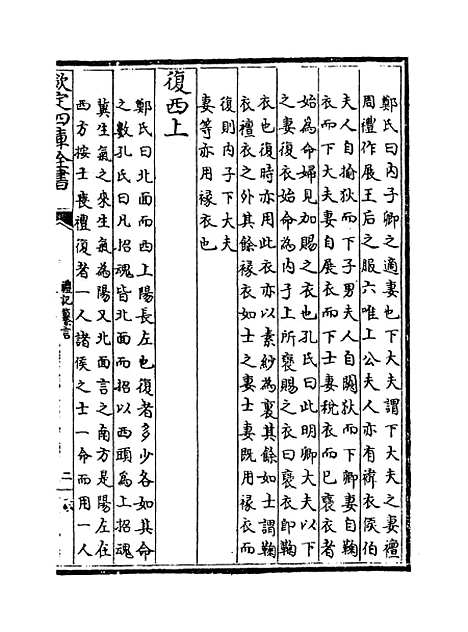 鄭氏曰內子卿之適妻也下大夫謂下大夫之妻襢
周禮作展王后之服六唯上公夫人亦有褘衣侯伯
夫人自揄狄而下子男夫人自闕狄而下卿妻自鞠
衣而下大夫妻自展衣而下士妻稅衣而已襃衣者
始為命婦見加賜之衣也孔氏曰此明卿大夫以下
之妻復衣始命為內子上所襃賜之衣曰襃衣即鞠
衣也復時亦用此衣亦以素紗為裏其餘如士謂鞠
衣襢衣之外其餘褖衣如士之妻士妻既用褖衣而
復則內子下大夫
妻等亦用褖衣也
復西上
鄭氏曰北面而西上陽長左也復者多少各如其命
之數孔氏曰凡招魂皆北面而招以西頭為上招魂
冀生氣之來生氣為陽又北面言之南方是陽左在
西方按士喪禮復者一人諸侯之士一命而用一人
欽定四庫全書
禮記纂言
二